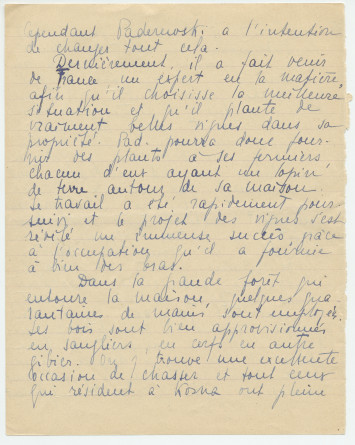 Cependant Paderewski a l'intention
de changer tout cela.
Dernièrement, il a fait venir
de France un expert en la matière
afin qu'il choisisse la meilleure
situation et qu'il plante de
vraiment belles vignes dans sa
propriété. Pad. pourra donc four-
nir des plants à ses fermiers,
chacun d'eux ayant un lopin
de terre autour de sa maison.
Ce travail a été rapidement pour-
suivi et le projet des vignes s'est
révélé un immense succès grâce
à l'occupation qu'il a fournie
à bien des bras.
Dans la grande forêt qui
entoure la maison, quelques qua-
rantaines de mains sont employées.
Ses bois sont bien approvisionnés
en sangliers, en cerfs en autre
gibier. On y trouve une excellente
occasion de chasser et tout ceux
qui résident à Kosna ont pleine